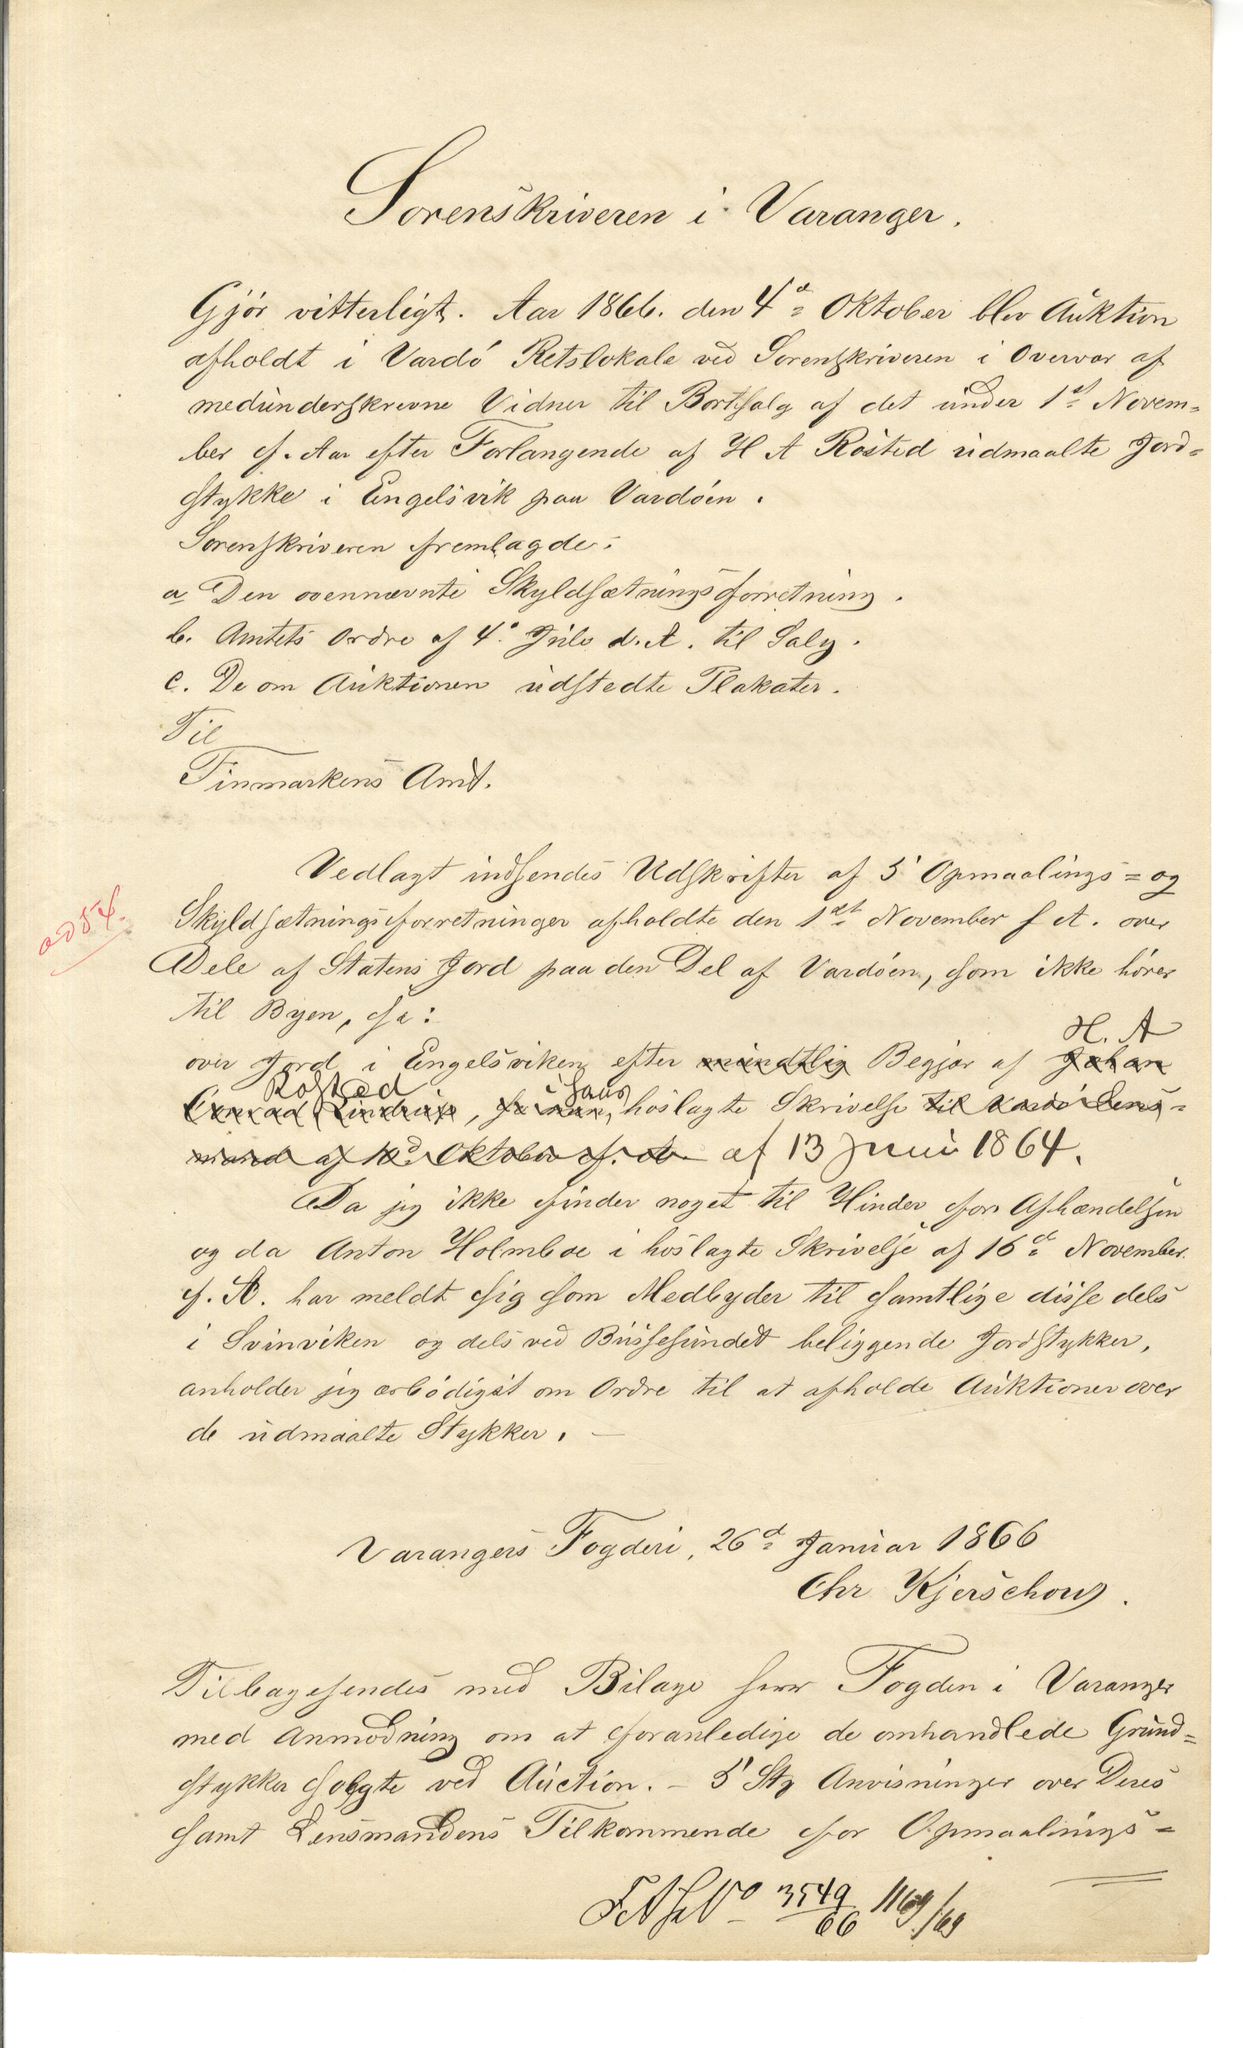 Sorenskriveren i Varanger.
Gjör vitterligt. Aar 1866. den 4de Oktober blev Auktion
afholdt i Vardö Retslokale ved Sorenskriveren i Overvær af
medunderskrevne Vidner til Bortsalg af det under 1st Novem=
ber f. Aar efter Forlangende af H A Rosted udmaalte Jord=
stykke i Engelsvik paa Vardöen.
Sorenskriveren fremlagde:
a Den ovennævnte Skyldsætningsforretning.
b. Amtets Ordre af 4de Juli d. A. til Salg.
c. De om Auktionen udstedte Plakater.
Til
Finmarkens Amt.
Vedlagt indsendes Udskrifter af 5 Opmaalings= og
Skyldsætningsforretninger afholdte den 1st November f A. over
Dele af Statens Jord paa den Del af Vardöen, som ikke hörer
til Byen, sa:
H. A
over Jord i Engelsviken efter mundtlig Begjær af Johan
Rosted i hans
Conrad, höslagte Skrivelse til Vardö Lens=
mand af 10d Oktober f. A. af 13 Juni 1864.
Da jeg ikke finder noget til Hinder for Afhændelsen
og da Anton Holmboe i höslagte Skrivelse af 16d November
f. A. har meldt sig som Medbyder til samtlige disse dels
i Svinviken og dels ved Bussesundet beliggende Jordstykker,
anholder jeg ærbödigst om Ordre til at afholde Auktioner over
de udmaalte Stykker. —
Varangers Fogderi, 26d Januar 1866
Chr Kjerschow.
Tilbagesendes med Bilage Herr Fogden i Varanger
med Anmodning om at foranledige de omhandlede Grund=
stykker solgte ved Auction. – 5 Stk Anvisninger over Deres
samt Lensmandens Tilkommende for Opmaalings=
3549
66 1169/69